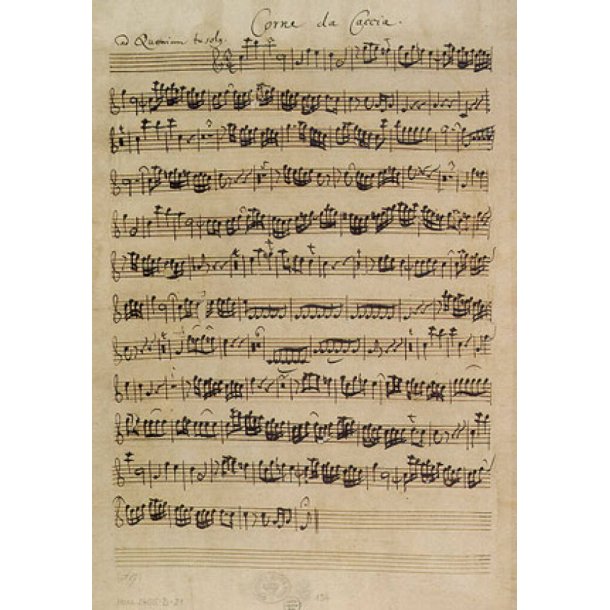 Corne da Caccia.
ad Quoniam tu solg.
134